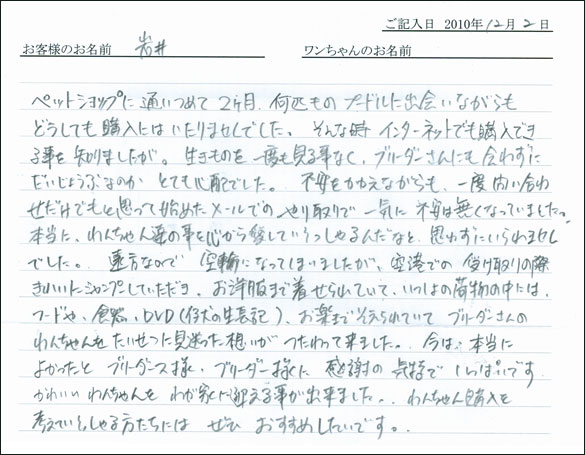 ご記入日 2010年12月2日
お客様のお名前 岩井 ワンちゃんのお名前
ペットショップに通いつめて2ヶ月、何匹ものプードルに出会いながらも
どうしても購入にはいたりませんでした。そんな時インターネットでも購入でき
る事を知りましたが、生きものを一度も見る事なく、ブリーダーさんにも会わずに
だいじょうぶなのかとても心配でした。不安をかかえながらも、一度問い合わ
せだけでもと思って始めたメールでのやり取りで一気に不安は無くなっていました。
本当に、わんちゃん達の事を心から愛していらっしゃるんだなと、思わずにいられません
でした。遠方なので空輸になってしまいましたが、空港での受け取りの際
きれいにシャンプしていただき、お洋服まで着せられていて、いっしょの荷物の中には、
フードや、食器、DVD(仔犬の生長記)、お薬まで そえられていてブリーダーさんの
わんちゃんをたいせつに見送った想いがつたわって来ました。今は、本当に
よかったとブリーダース様、ブリーダー様に感謝の気持でいっぱいです
かわいいわんちゃんをわが家に迎える事が出来ました。わんちゃん購入を
考えていらしゃる方たちにはぜひおすすめしたいです。